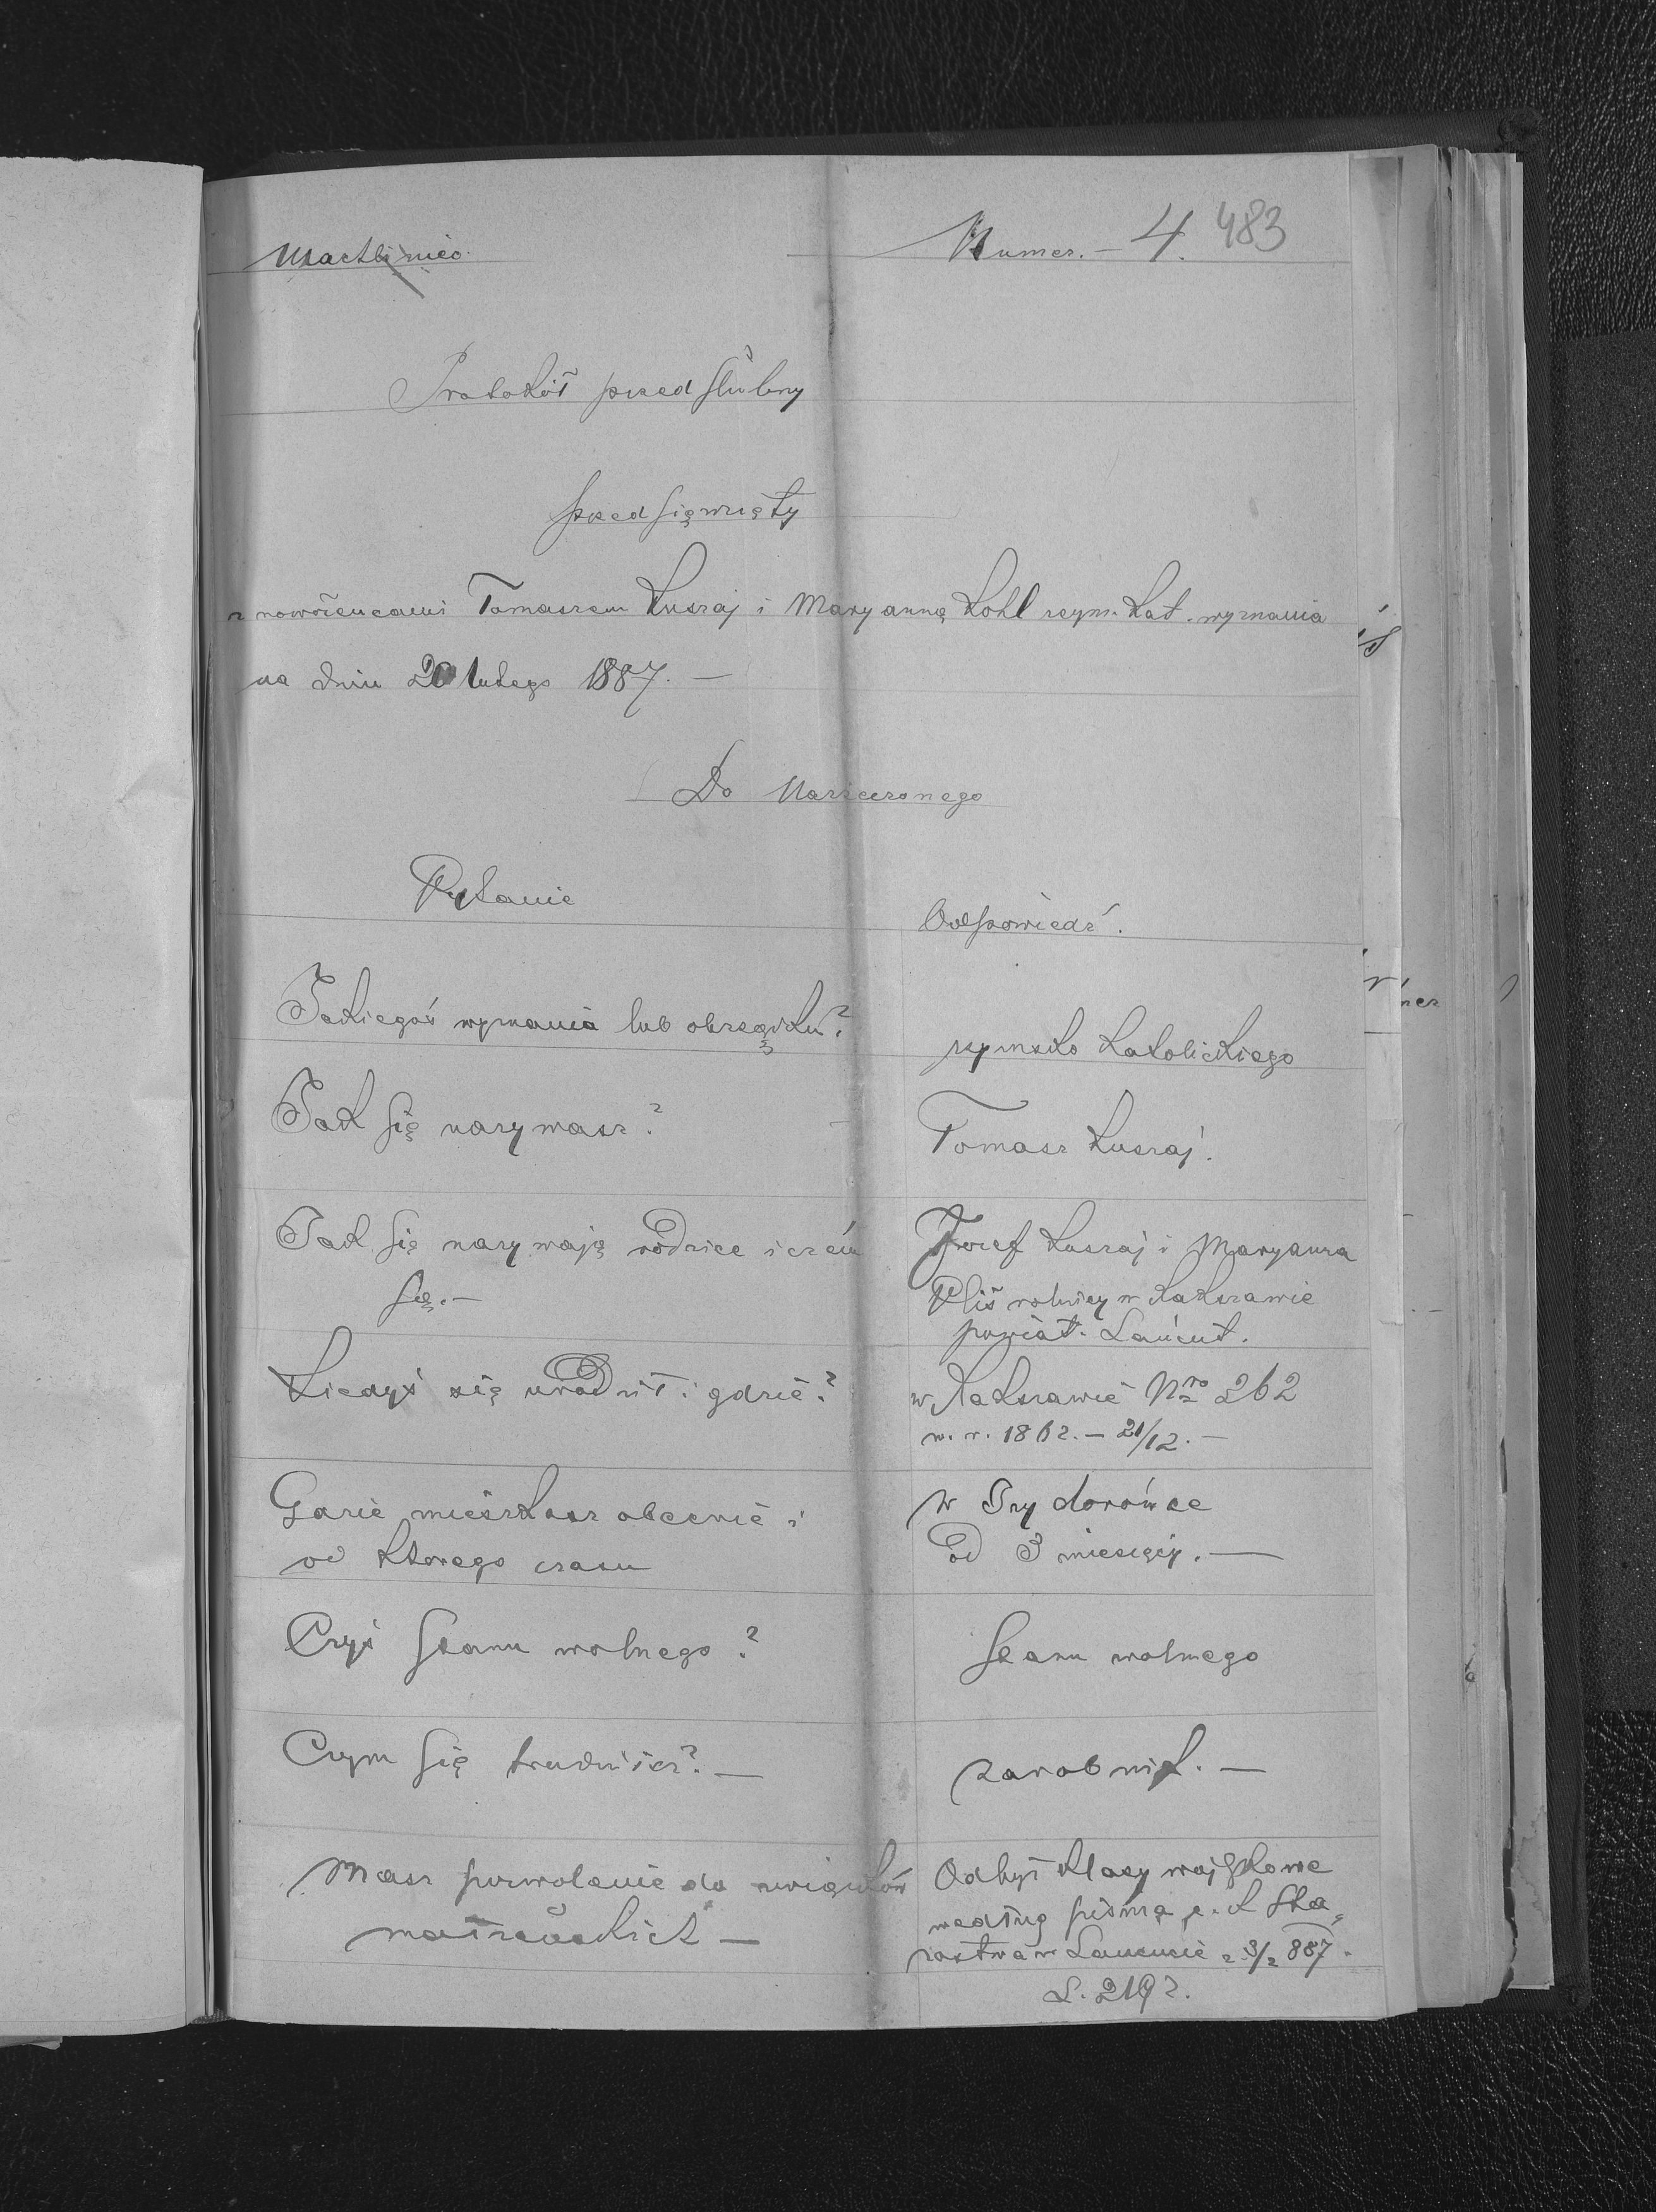 Machliniec.
Numer. – 4. 483
Protokół przedślubny
przedsięwzięty
z nowożeńcami Tomaszem Kusraj i Maryanną Kohl rzym. kat. wyznania
na dniu 20 lutego 1887. –
Do Narzeczonego
Pytanie
Odpowiedź.
Jakiegoś wyznania lub obrządku?
rzymsko katolickiego
Jak się nazywasz?
Tomasz Kusraj.
Jak się nazywają rodzice i czém
są. –
Józef Kusraj i Maryanna
Pliś rolnicy w Rakszawie
powiat. Łańcut.
Kiedyś się urodził i gdzie?
w Rakszawie Nro 262
w. r. 1862. – 21/12. –
Gdzie mieszkasz obecnie i
od ktorego czasu
w Izydorówce
od 3 miesięcy. –
Czyś stanu wolnego?
stanu wolnego
Czym się trudnisz? –
zarobnik. –
Masz pozwolenie do związków
małżeńskich –
Odbył klasy wojskowe
według pisma c. k Sta-
rostwa w Łancucie z 3/2 887.
L. 2192.